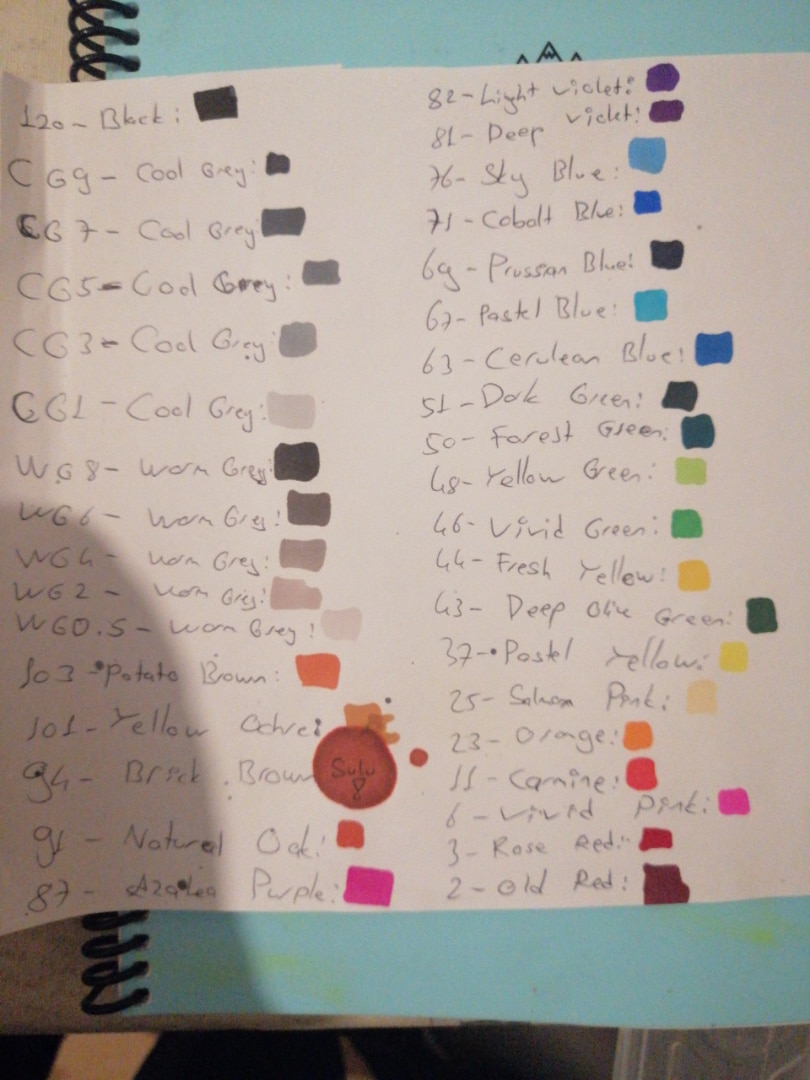 120- Black:
CG9- Cool Grey:
CG7- Cool Grey
CG5- Cool Grey:
CG3- Cool Grey:
CG1- Cool Grey:
WG8- Worm Grey:
WG6- Worm Grey:
WG4- Worm Grey:
WG2- Worm Grey:
WG0.5- Worm Grey:
103- Potato Brown:
101- Yellow Ochre:
94- Brick Brown
Sulu
91- Natural Oak:
87- Azalea Purple:
82- Light Violet:
81- Deep Violet:
76- Sky Blue:
71- Cobalt Blue:
69- Prussian Blue:
67- Pastel Blue:
63- Cerulean Blue:
51- Dark Green:
50- Forest Green:
48- Yellow Green:
46- Vivid Green:
44- Fresh Yellow:
43- Deep Olive Green:
37- Pastel Yellow:
25- Salmon Pink:
23- Orange:
11- Carmine:
6- Vivid Pink:
3- Rose Red:
2- Old Red: